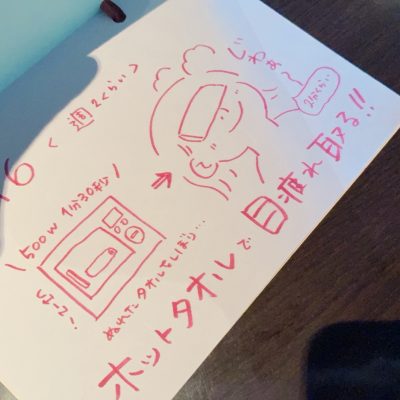 16
< 週2くらい >
じわぁ〜
2分くらい
\ 500W 1分30秒 /
ぬれたタオルをしぼり…
ホットタオルで目疲れ取る!!